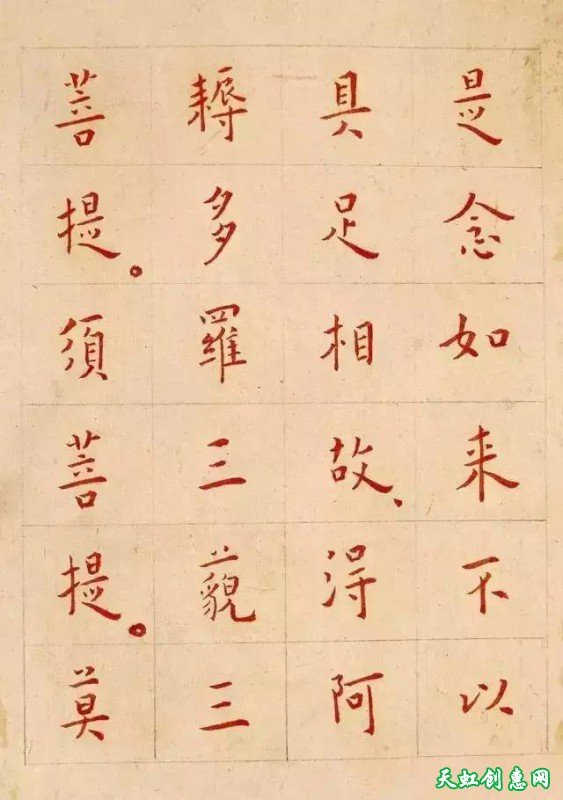 是念如来不以
具足相故、得阿
耨多羅三藐三
菩提。須菩提。莫
天虹创惠网